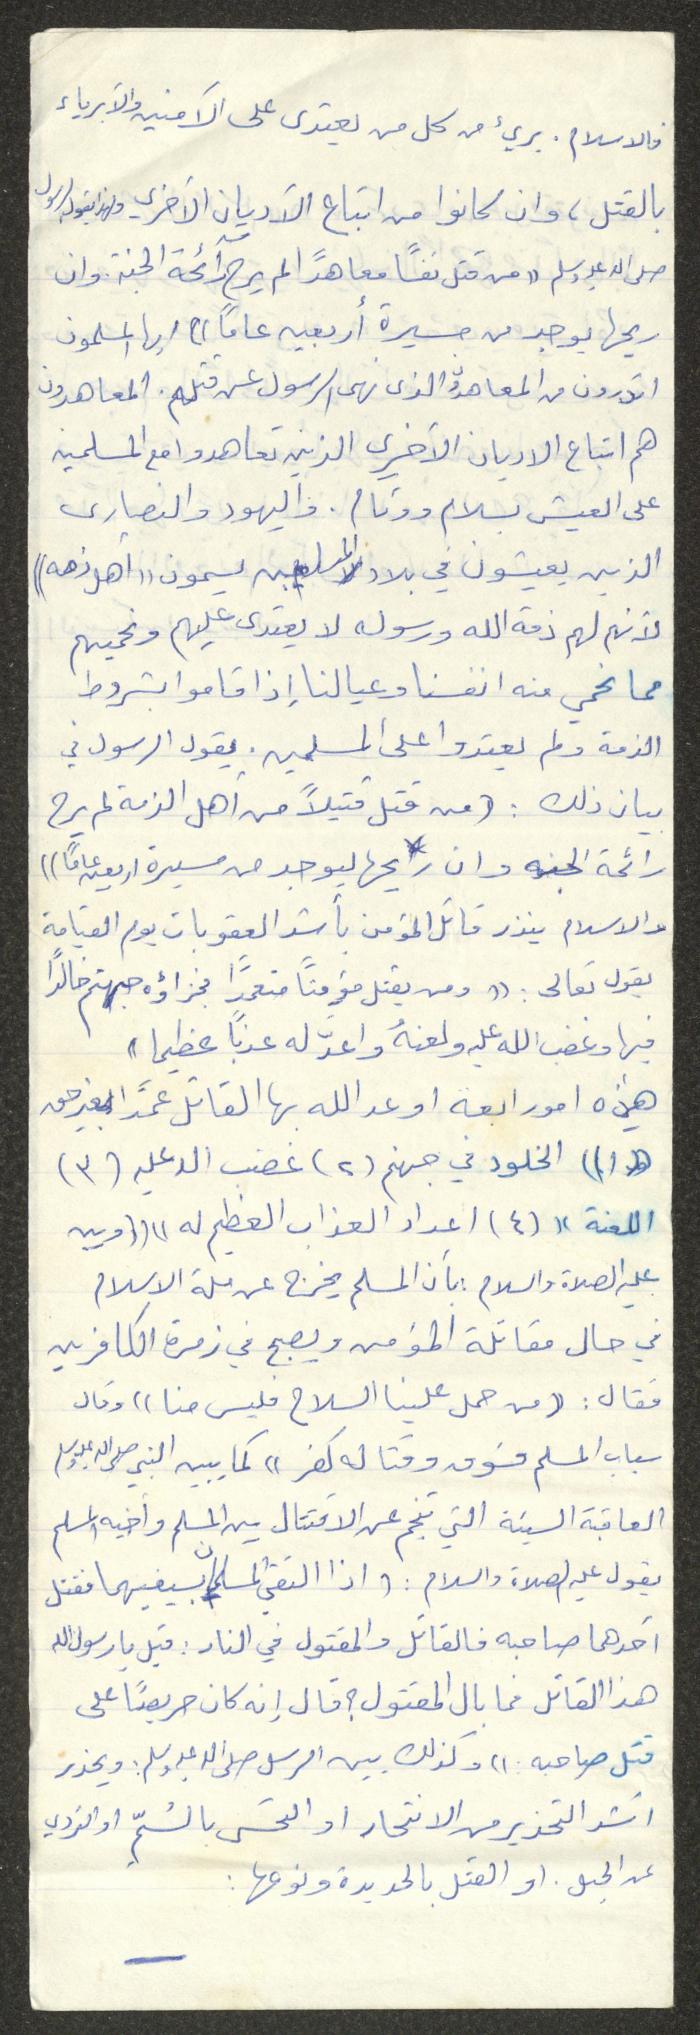 فالاسلام . بريء من كل من يعتدى على الآمنين والأبرياء
بالقتل ، وان كانوا من اتباع الأديان الأخرى ولهذا يقول الرسول
صلى الله عليه وسلم (( من قتل نفسًا معاهدًا لم يرح رآئحة الجنة . وان
ريحها يوجد من مسيرة أربعين عامًا )) ايها المسلمون
اتدرون من المعاهد الذى نهى الرسول عن قتلهم . المعاهدون
هم اتباع الاديان الأخرى الذين تعاهدوا مع المسلمين
على العيش بسلام ووئام . فاليهود والنصارى
الذين يعيشون في بلاد المسلمين يسمون (( أهل ذمه ))
لأنهم لهم ذمة الله ورسوله لا يعتدى عليهم ونحميهم
مما نحمي منه انفسنا وعيالنا إذا قاموا بشروط
الذمة ولم يعتدوا على المسلمين . يقول الرسول في
بيان ذلك : (من قتل قتيلاً من أهل الذمة لم يرح
رائحة الجنه وان ريحها ليوجد من مسيرة اربعين عامًا ))
والاسلام ينذر قاتل المؤمن بأشد العقوبات يوم القيامة
يقول تعالى : (( ومن يقتل مؤمنًا متعمدًا فجزاؤه جهنم خالدًا
فيها وغضب الله عليه ولعنهُ واعدّ له عذبًا عظيما ))
هذه امور ابعة اوعد الله بها القاتل عمدًا بغير حق
(١) الخلود في جهنم (٢) غضب الله عليه (٣)
اللعنة (٤) اعداد العذاب العظيم له )) ((وبين
عليه الصلاة والسلام : بأن المسلم يخرج عن ملة الاسلام
في حال مقاتلة المؤمن ويصبح في زمرة الكافرين
فقال : (( من حمل علينا السلاح فليس منا )) وقال
سباب المسلم فسوق وقتاله كفر )) كما يبين النبي صلى الله عليه وسلم
العاقبة السيئة التي تنجم عن الاقتتال بين المسلم وأخيه المسلم
يقول عليه الصلاة والسلام : ( اذا التقى المسلمان بسيفيهما فقتل
أحدهما صاحبه فالقاتل والمقتول في النار : قيل يا رسول الله
هذا القاتل فما بال المقتول ؟ قال إنه كان حريصًا على
قتل صاحبه : )) وكذلك بين الرسل صلى الله عليه وسلم : ويحذر
اشد التحذير من الانتحار او التحسّي بالسُمّ او التردي
عن الجبل . او القتل بالحديدة ونوعها :